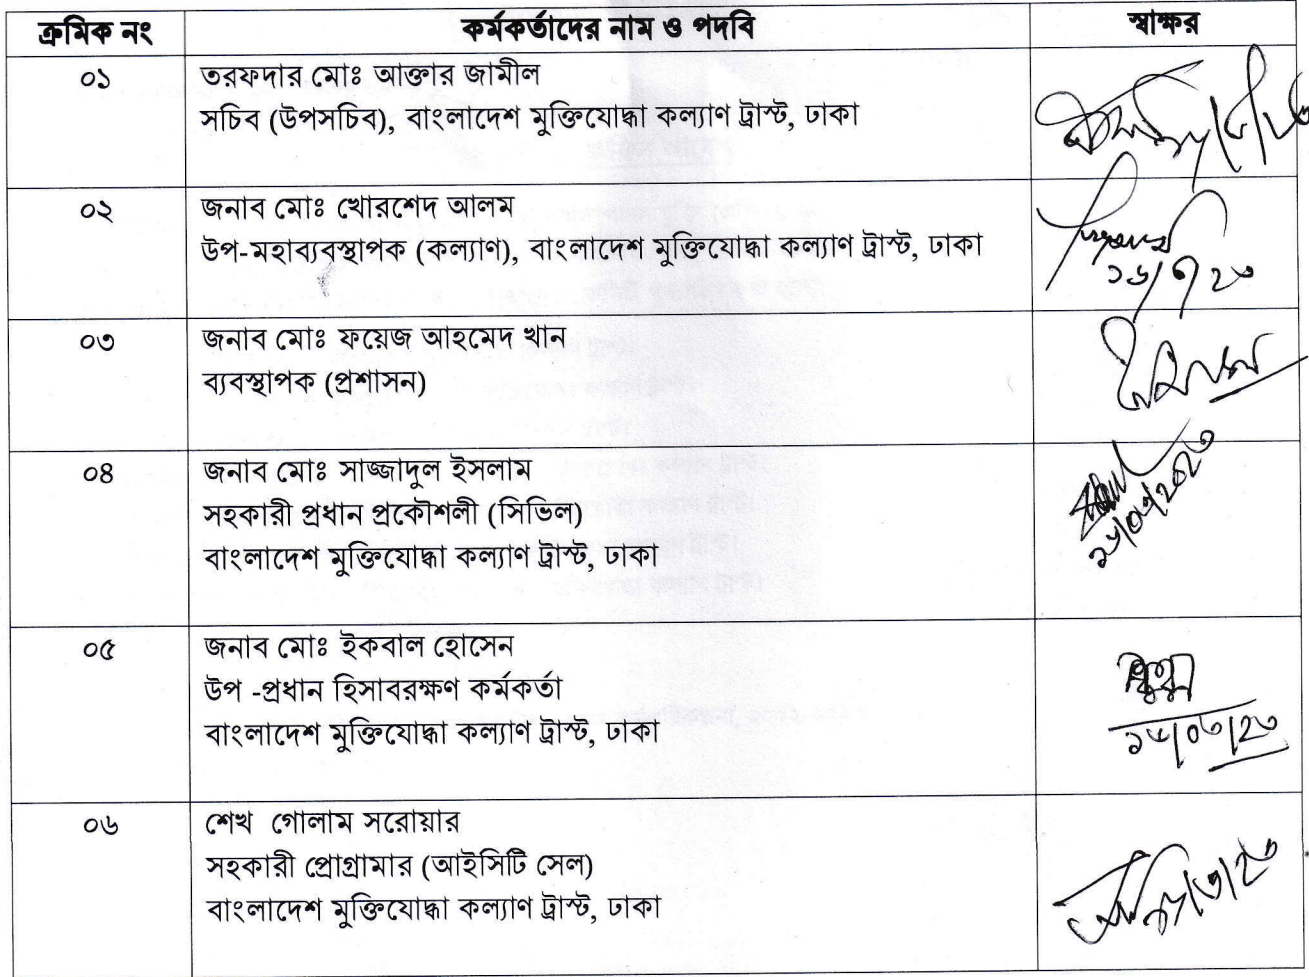 ক্রমিক নং কর্মকর্তাদের নাম ও পদবি স্বাক্ষর
০১ তরফদার মোঃ আক্তার জামীল
সচিব (উপসচিব), বাংলাদেশ মুক্তিযোদ্ধা কল্যাণ ট্রাস্ট, ঢাকা
০২ জনাব মোঃ খোরশেদ আলম
উপ-মহাব্যবস্থাপক (কল্যাণ), বাংলাদেশ মুক্তিযোদ্ধা কল্যাণ ট্রাস্ট, ঢাকা
০৩ জনাব মোঃ ফয়েজ আহমেদ খান
ব্যবস্থাপক (প্রশাসন)
০৪ জনাব মোঃ সাজ্জাদুল ইসলাম
সহকারী প্রধান প্রকৌশলী (সিভিল)
বাংলাদেশ মুক্তিযোদ্ধা কল্যাণ ট্রাস্ট, ঢাকা
০৫ জনাব মোঃ ইকবাল হোসেন
উপ -প্রধান হিসাবরক্ষণ কর্মকর্তা
বাংলাদেশ মুক্তিযোদ্ধা কল্যাণ ট্রাস্ট, ঢাকা
০৬ শেখ গোলাম সরোয়ার
সহকারী প্রোগ্রামার (আইসিটি সেল)
বাংলাদেশ মুক্তিযোদ্ধা কল্যাণ ট্রাস্ট, ঢাকা